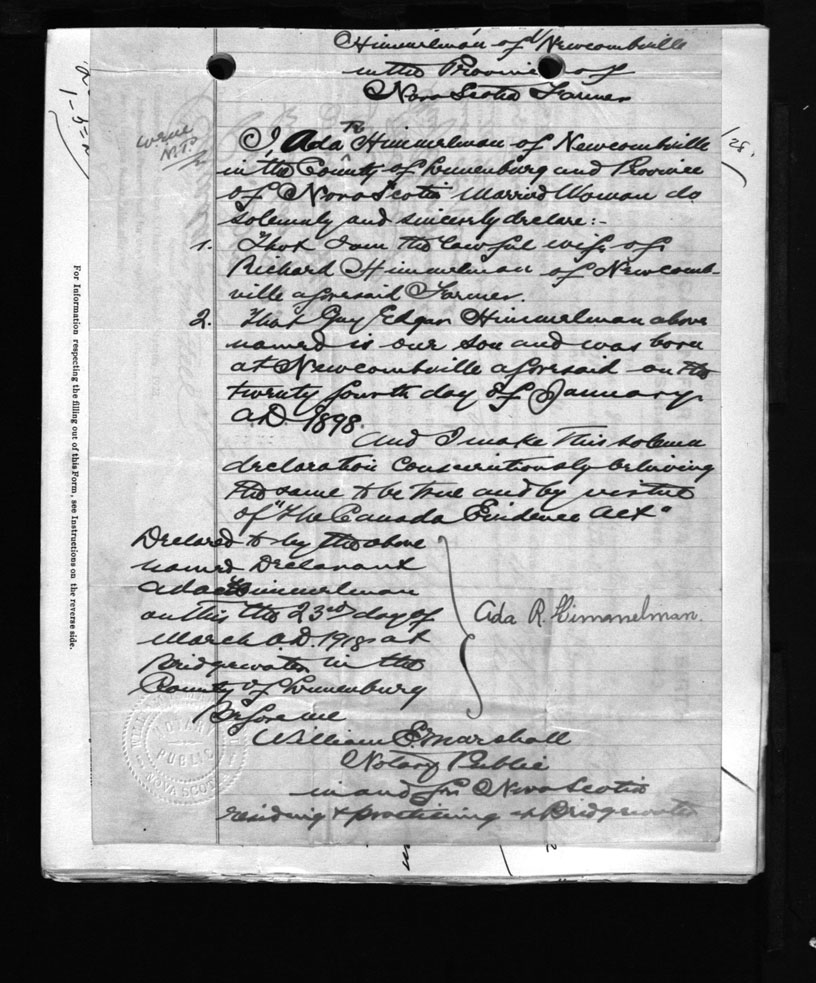 Himmelman of Newcombville
in the Province of
Nova Scotia Farmer
I, Ada R Himmelman of Newcombville
in the County of Lunenburg and Province
of Nova Scotia Married Woman do
solemnly and sincerly declare:-
1. That I am the lawful wife of
Richard Himmelman of Newcomb-
ville aforesaid Farmer.
2. That Guy Edgar Himmelman above
named is our son and was born
at Newcombville aforesaid on the
twenty fourth day of January
A.D. 1898.
And I make this solemn
declaration conscientiously believing
the same to be true and by virtue
of "The Canada Evidence Act"
Declared to by the above
named Declarant
Ada R Himmelman
on this the 23rd day of
March A.D. 1918 at
Bridgewater in the
County of Lunenburg
Before me
Ada R. Himmelman.
William E. Marshall
Notary Public
in and for Nova Scotia
residing & practising at Bridgewater
NOTARY
PUBLIC
NOVA SCOTIA
28.
For Information respecting the filling out of this Form, see Instructions on the reverse side.